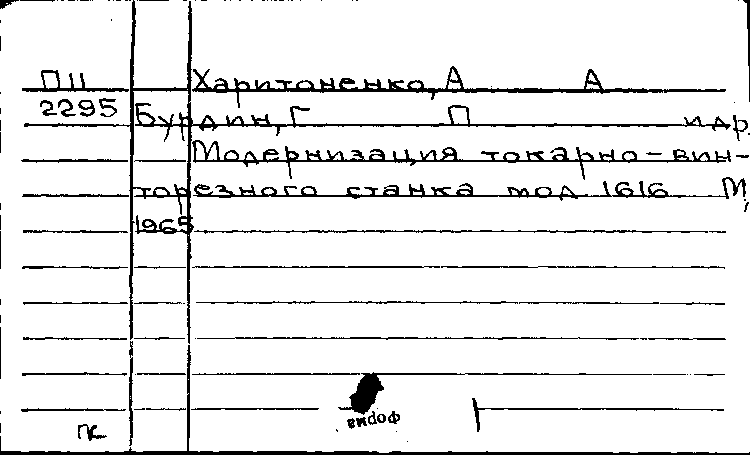 П11 Харитоненко, А А
2295 Бурдин, Г П и др
Модернизация токарно-вин-
торезного станка мод 1616 М,
1965
форма
пк